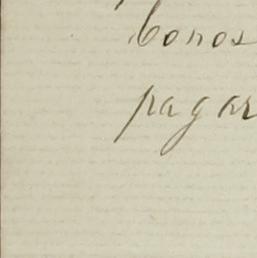 bonos
pagar